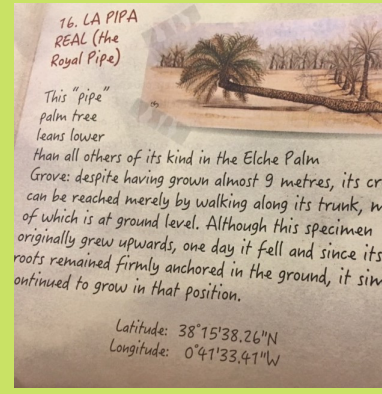 16. LA PIPA
REAL (the
Royal Pipe)
This "pipe"
palm tree
leans lower
than all others of its kind in the Elche Palm
Grove: despite having grown almost 9 metres, its cr
can be reached merely by walking along its trunk, m
of which is at ground level. Although this specimen
originally grew upwards, one day it fell and since its
roots remained firmly anchored in the ground, it sim
ontinued to grow in that position.
Latitude: 38°15'38.26"N
Longitude: 0°41'33.41"W